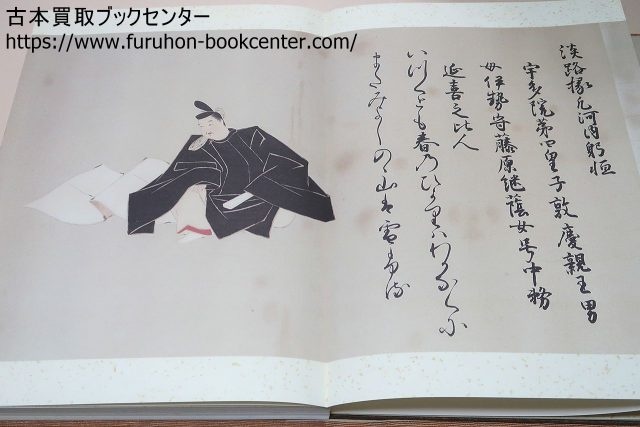 古本買取ブックセンター
https://www.furuhon-bookcenter.com/
淡路掾凡河内躬恒
宇多院第四皇子敦慶親王男
母伊勢守藤原継蔭女号中務
延喜之比人
いつくとも春乃ひかりハわかなくに
またみよしのゝ山は雪ふる